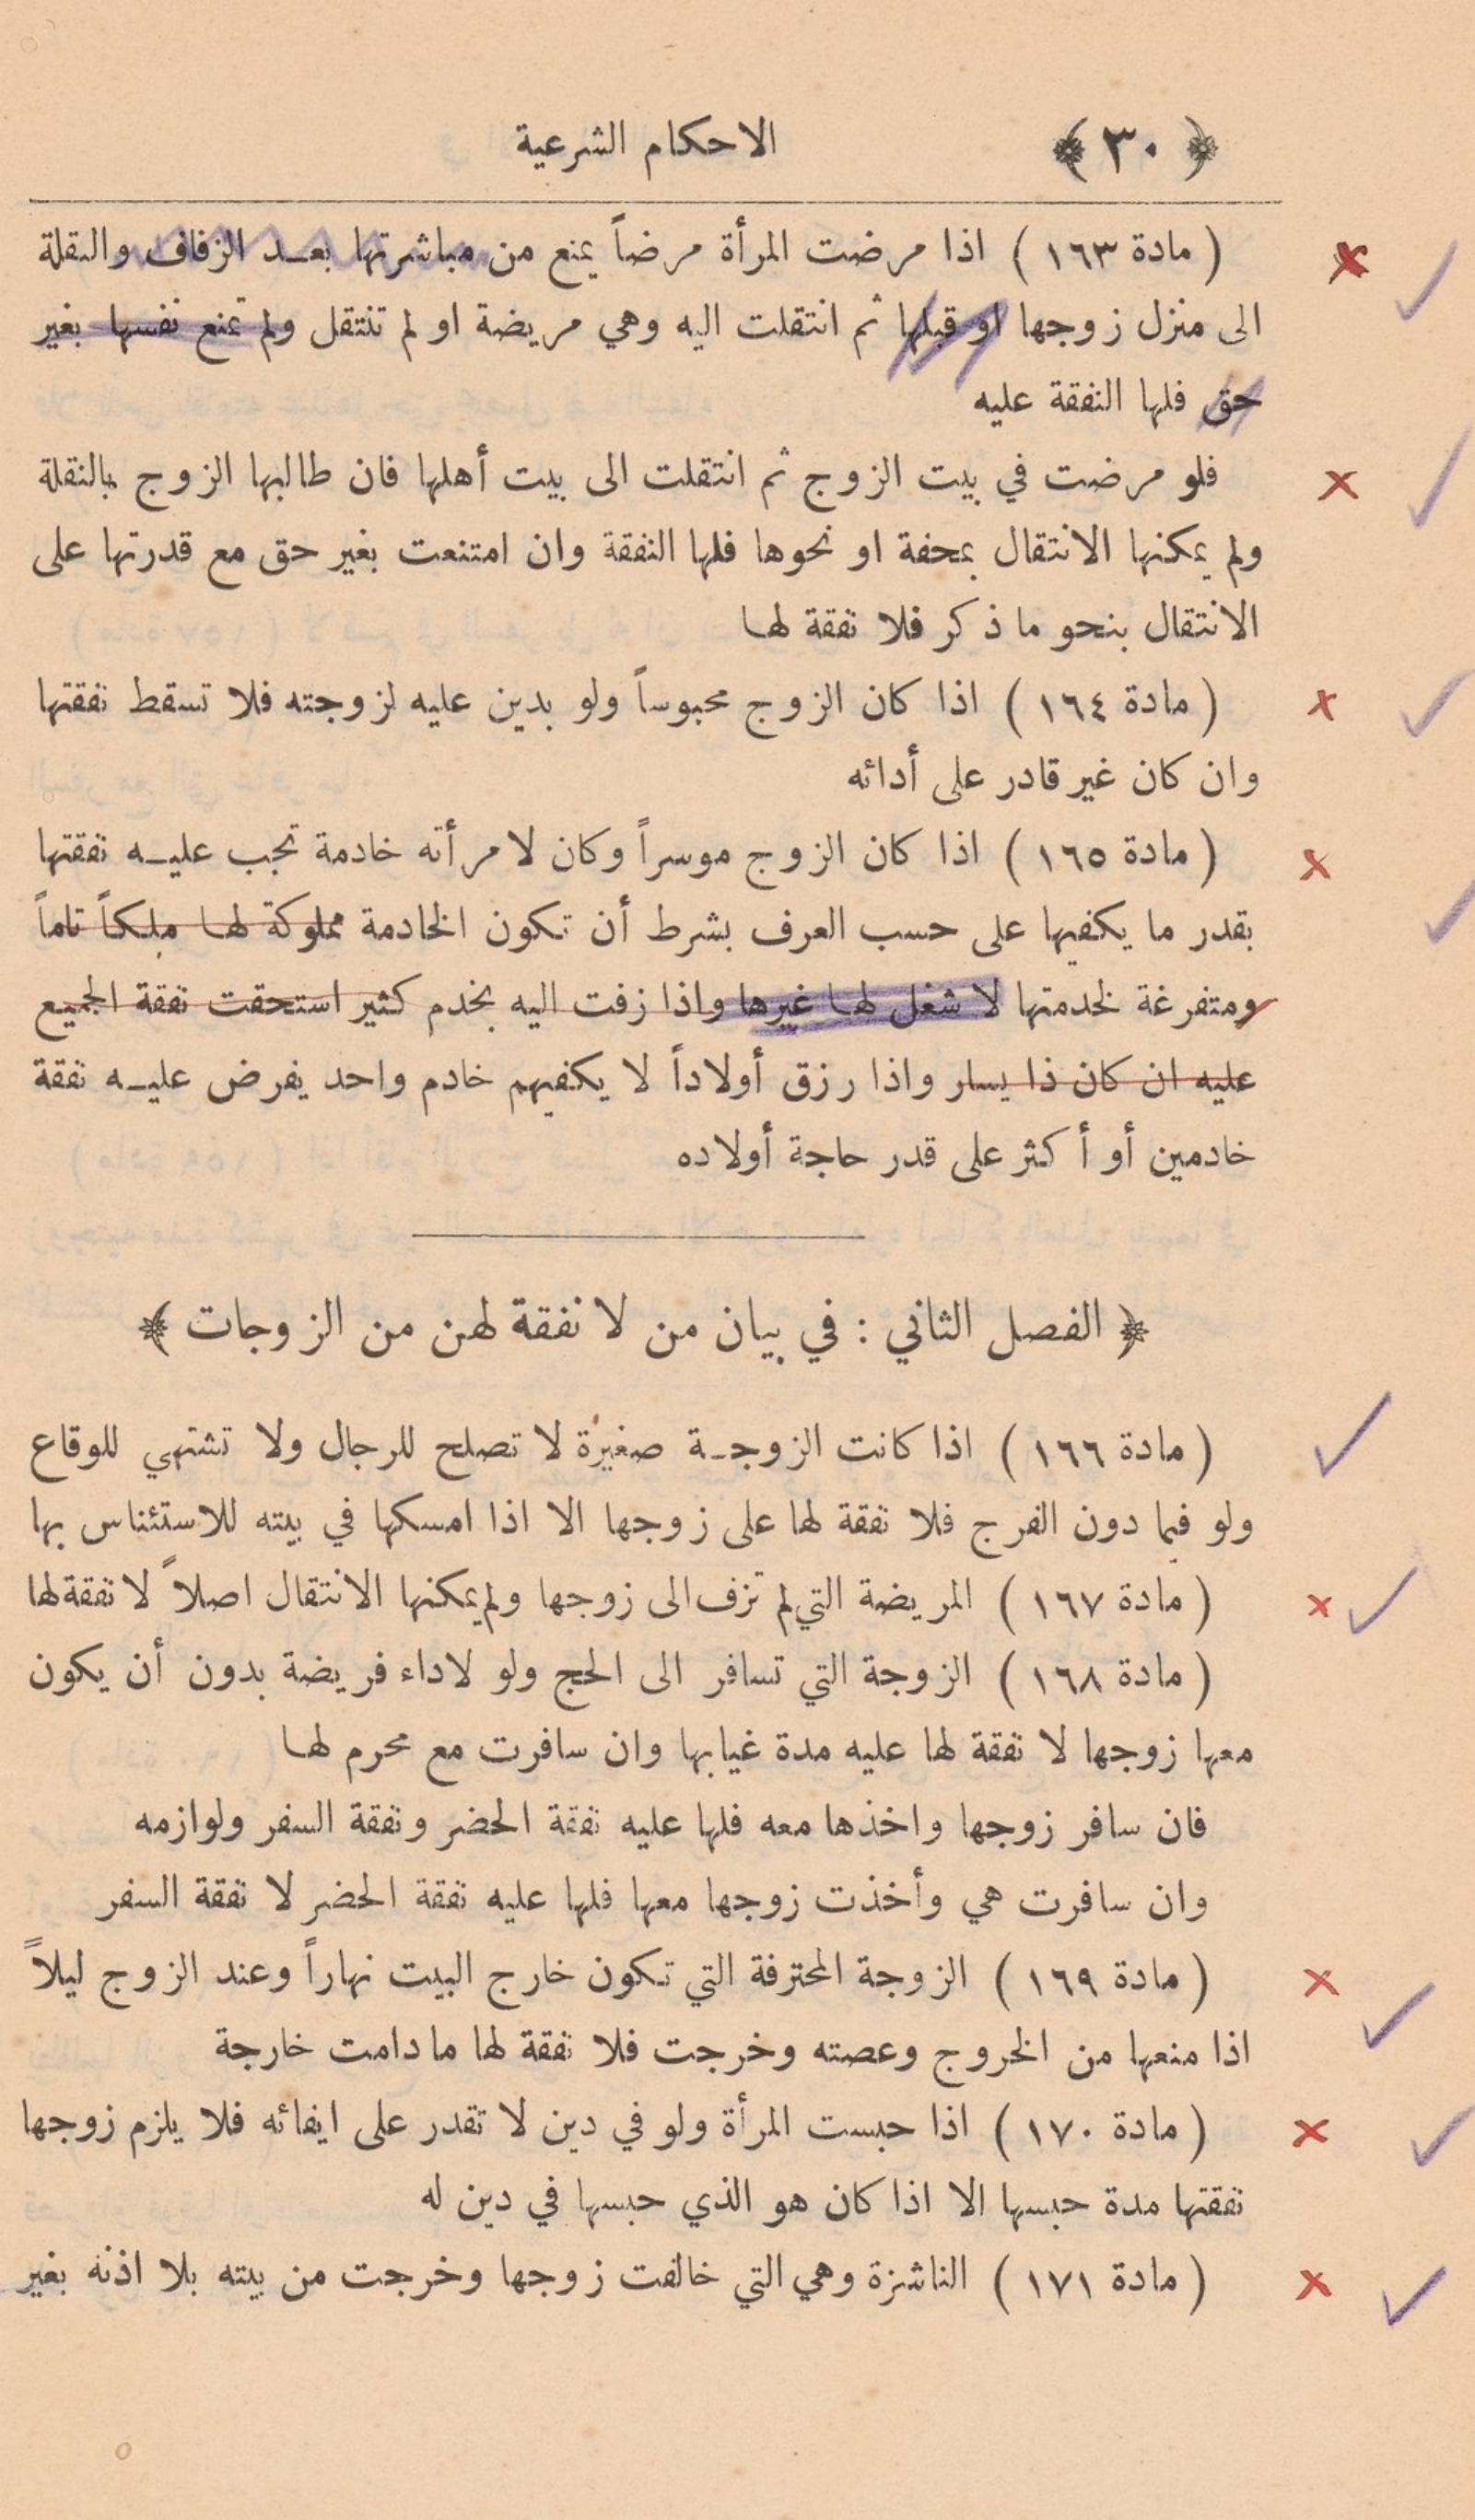 ﴿ ٣٠ ﴾ الاحكام الشرعية
( مادة ١٦٣ ) اذا مرضت المرأة مرضاً يمنع من مباشرتها بعد الزفاف والنقلة
الى منزل زوجها او قبلها ثم انتقلت اليه وهي مريضة او لم تنتقل ولم تمنع نفسها بغير
حق فلها النفقة عليه
فلو مرضت في بيت الزوج ثم انتقلت الى بيت أهلها فان طالبها الزوج بالنقلة
ولم يمكنها الانتقال بمحفة او نحوها فلها النفقة وان امتنعت بغير حق مع قدرتها على
الانتقال بنحو ما ذكر فلا نفقة لها
( مادة ١٦٤ ) اذا كان الزوج محبوساً ولو بدين عليه لزوجته فلا تسقط نفقتها
وان كان غير قادر على أدائه
( مادة ١٦٥ ) اذا كان الزوج موسراً وكان لامرأته خادمة تجب عليه نفقتها
بقدر ما يكفيها على حسب العرف بشرط أن تكون الخادمة مملوكة لها ملكاً تاماً
ومتفرغة لخدمتها لا شغل لها غيرها واذا زفت اليه بخدم كثير استحقت نفقة الجميع
عليه ان كان ذا يسار واذا رزق أولاداً لا يكفيهم خادم واحد يفرض عليه نفقة
خادمين أو أكثر على قدر حاجة أولاده
﴿ الفصل الثاني : في بيان من لا نفقة لهن من الزوجات ﴾
( مادة ١٦٦ ) اذا كانت الزوجة صغيرة لا تصلح للرجال ولا تشتهي للوقاع
ولو فيما دون الفرج فلا نفقة لها على زوجها الا اذا امسكها في بيته للاستئناس بها
( مادة ١٦٧ ) المريضة التي لم تزف الى زوجها ولم يمكنها الانتقال اصلاً لا نفقة لها
( مادة ١٦٨ ) الزوجة التي تسافر الى الحج ولو لاداء فريضة بدون أن يكون
معها زوجها لا نفقة لها عليه مدة غيابها وان سافرت مع محرم لها
فان سافر زوجها واخذها معه فلها عليه نفقة الحضر ونفقة السفر ولوازمه
وان سافرت هي وأخذت زوجها معها فلها عليه نفقة الحضر لا نفقة السفر
( مادة ١٦٩ ) الزوجة المحترفة التي تكون خارج البيت نهاراً وعند الزوج ليلاً
اذا منعها من الخروج وعصته وخرجت فلا نفقة لها ما دامت خارجة
( مادة ١٧٠ ) اذا حبست المرأة ولو في دين لا تقدر على ايفائه فلا يلزم زوجها
نفقتها مدة حبسها الا اذا كان هو الذي حبسها في دين له
( مادة ١٧١ ) الناشزة وهي التي خالفت زوجها وخرجت من بيته بلا اذنه بغير